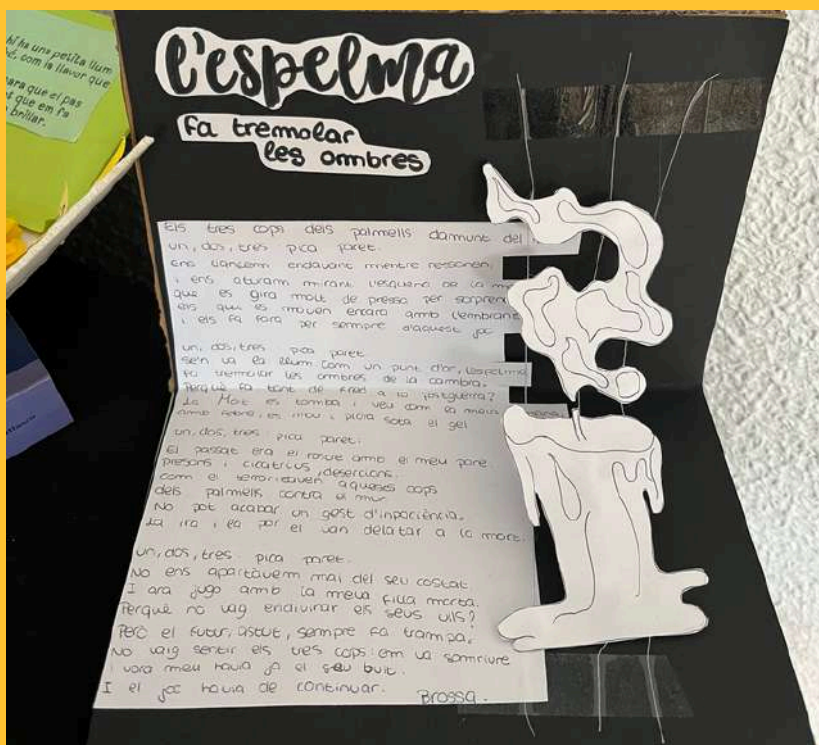 hi ha una petita llum
com la llavor que
para que el pas
que em fa
brillar.
l'espelma
fa tremolar
les ombres
Els tres cops dels palmells damunt del
un, dos, tres pica paret.
ens llancem endavant mientre ressonen,
i ens aturam mirant l'esquena de la
que es gira molt de pressa per
els que es mouen encara amb l'embranz
i els fa fora per sempre d'aquest joc
un, dos, tres pica paret
se'n va la llum com un punt d'or, l'espelma
fa tremolar les ombres de la cambra.
Perquè fa tant de fred a la postguerra?
La Mort es tomba i veu com la meva mana,
amb febre, es mou i plora sota el gel
un, dos, tres pica paret.
El passat era el rostre amb el meu pare
presons i cicatrius, desercions.
com el terroritzaven aquests cops
dels palmells contra el mur.
No pot acabar un gest d'inpaciència.
La ira i la por el van delatar a la mort.
un, dos, tres pica paret.
No ens apartàvem mai del seu costat.
I ara jugo amb la meva filla morta.
Perquè no vag endivinar els seus ulls?
Però el futur, astut, sempre fa trampa.
No vaig sentir els tres cops: em va somriure
i vora meu havia ja el seu buit.
I el joc havia de continuar.
Brossa.